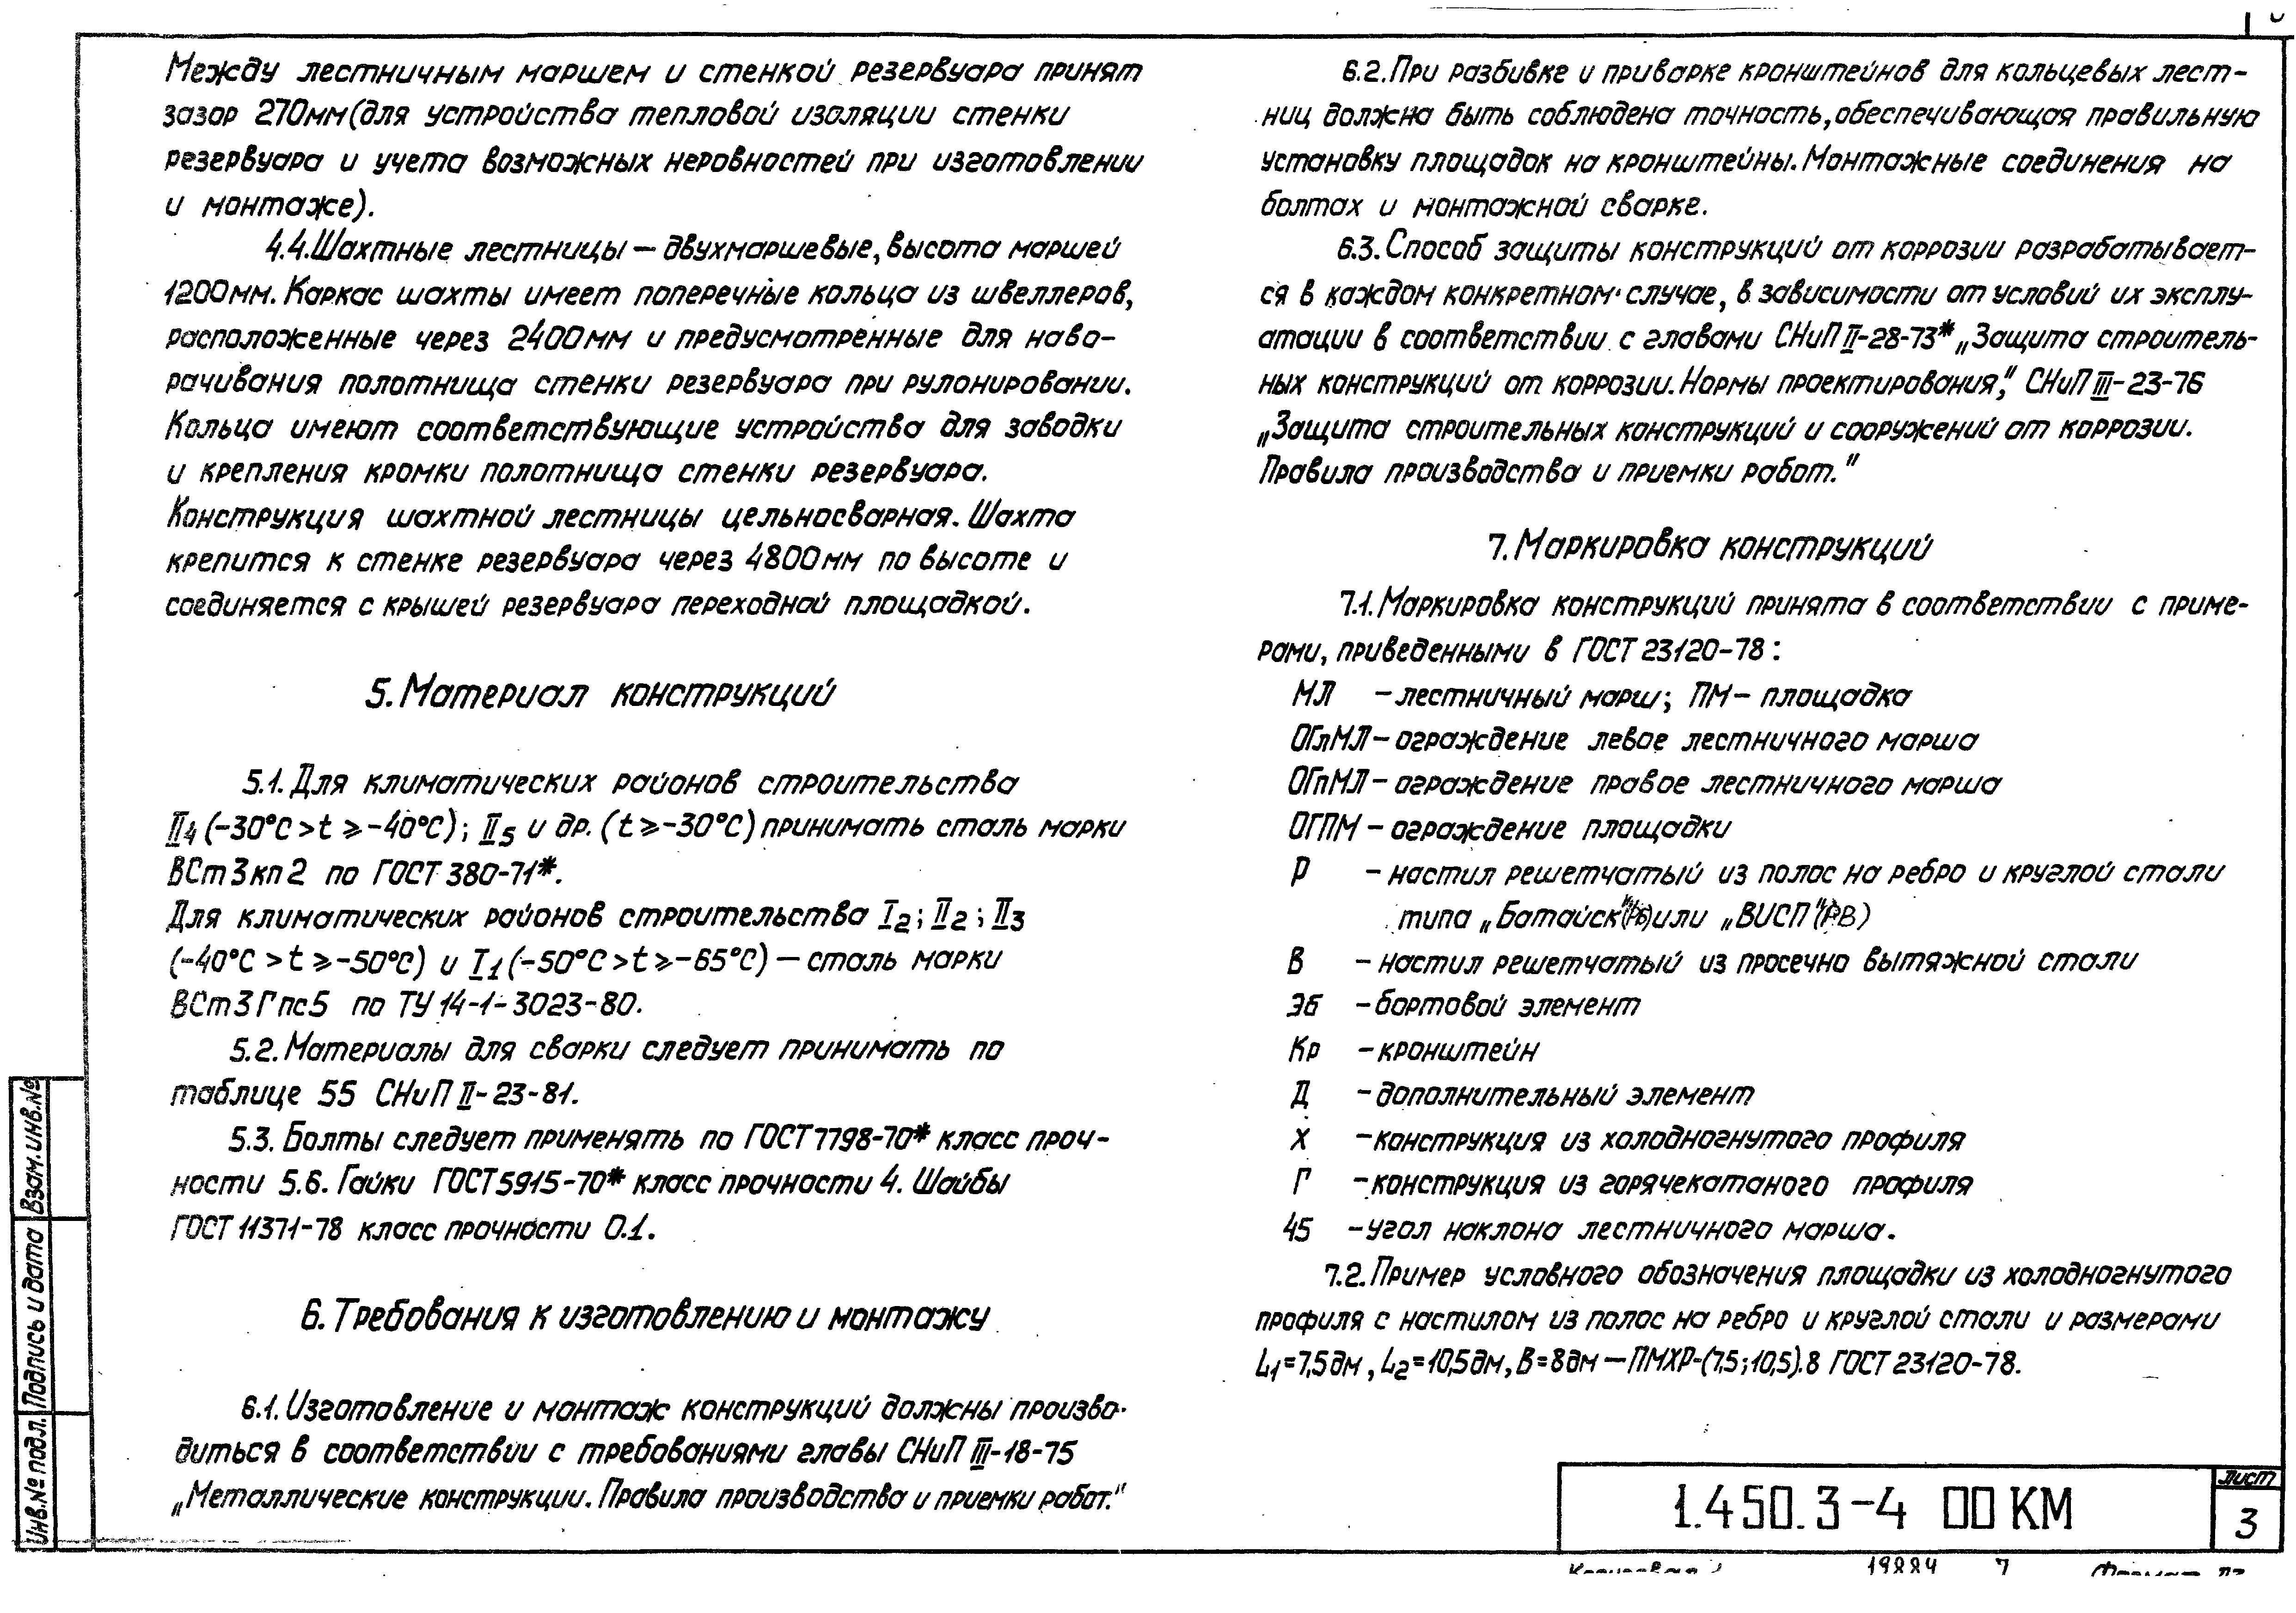 Между лестничным маршем и стенкой резервуара принят
зазор 270мм (для устройства тепловой изоляции стенки
резервуара и учета возможных неровностей при изготовлении
и монтаже).
4.4. Шахтные лестницы — двухмаршевые, высота маршей
1200мм. Каркас шахты имеет поперечные кольца из швеллеров,
расположенные через 2400мм и предусмотренные для наво-
рачивания полотнища стенки резервуара при рулонировании.
Кольца имеют соответствующие устройства для заводки
и крепления кромки полотнища стенки резервуара.
Конструкция шахтной лестницы цельносварная. Шахта
крепится к стенке резервуара через 4800мм по высоте и
соединяется с крышей резервуара переходной площадкой.
5. Материал конструкций
5.1. Для климатических районов строительства
II4 (-30°C > t ⩾ -40°C); II5 и др. (t ⩾ -30°C) принимать сталь марки
ВСт3кп2 по ГОСТ 380-71*.
Для климатических районов строительства I2; II2; II3
(-40°C > t ⩾ -50°C) и I1 (-50°C > t ⩾ -65°C) — сталь марки
ВСт3Гпс5 по ТУ 14-1-3023-80.
5.2. Материалы для сварки следует принимать по
таблице 55 СНиП II-23-81.
5.3. Болты следует применять по ГОСТ 7798-70* класс проч-
ности 5.6. Гайки ГОСТ 5915-70* класс прочности 4. Шайбы
ГОСТ 11371-78 класс прочности 0.1.
6. Требования к изготовлению и монтажу
6.1. Изготовление и монтаж конструкций должны произво-
диться в соответствии с требованиями главы СНиП III-18-75
„Металлические конструкции. Правила производства и приемки работ."
6.2. При разбивке и приварке кронштейнов для кольцевых лест-
ниц должна быть соблюдена точность, обеспечивающая правильную
установку площадок на кронштейны. Монтажные соединения на
болтах и монтажной сварке.
6.3. Способ защиты конструкций от коррозии разрабатывает-
ся в каждом конкретном случае, в зависимости от условий их эксплу-
атации в соответствии с главами СНиП II-28-73* „Защита строитель-
ных конструкций от коррозии. Нормы проектирования," СНиП III-23-76
„Защита строительных конструкций и сооружений от коррозии.
Правила производства и приемки работ."
7. Маркировка конструкций
7.1. Маркировка конструкций принята в соответствии с приме-
рами, приведенными в ГОСТ 23120-78:
МЛ – лестничный марш; ПМ – площадка
ОГлМЛ – ограждение левое лестничного марша
ОГпМЛ – ограждение правое лестничного марша
ОГПМ – ограждение площадки
Р – настил решетчатый из полос на ребро и круглой стали
типа „Батайск" (РБ) или „ВИСП" (РВ)
В – настил решетчатый из просечно вытяжной стали
Эб – бортовой элемент
Кр – кронштейн
Д – дополнительный элемент
Х – конструкция из холодногнутого профиля
Г – конструкция из горячекатаного профиля
45 – угол наклона лестничного марша.
7.2. Пример условного обозначения площадки из холодногнутого
профиля с настилом из полос на ребро и круглой стали и размерами
L1=7,5дм, L2=10,5дм, В=8дм — ПМХР-(7,5; 10,5).8 ГОСТ 23120-78.
Взам. инв.№
Подпись и дата
Инв.№ подл.
1.450.3-4 00 КМ
лист
3
19884 7